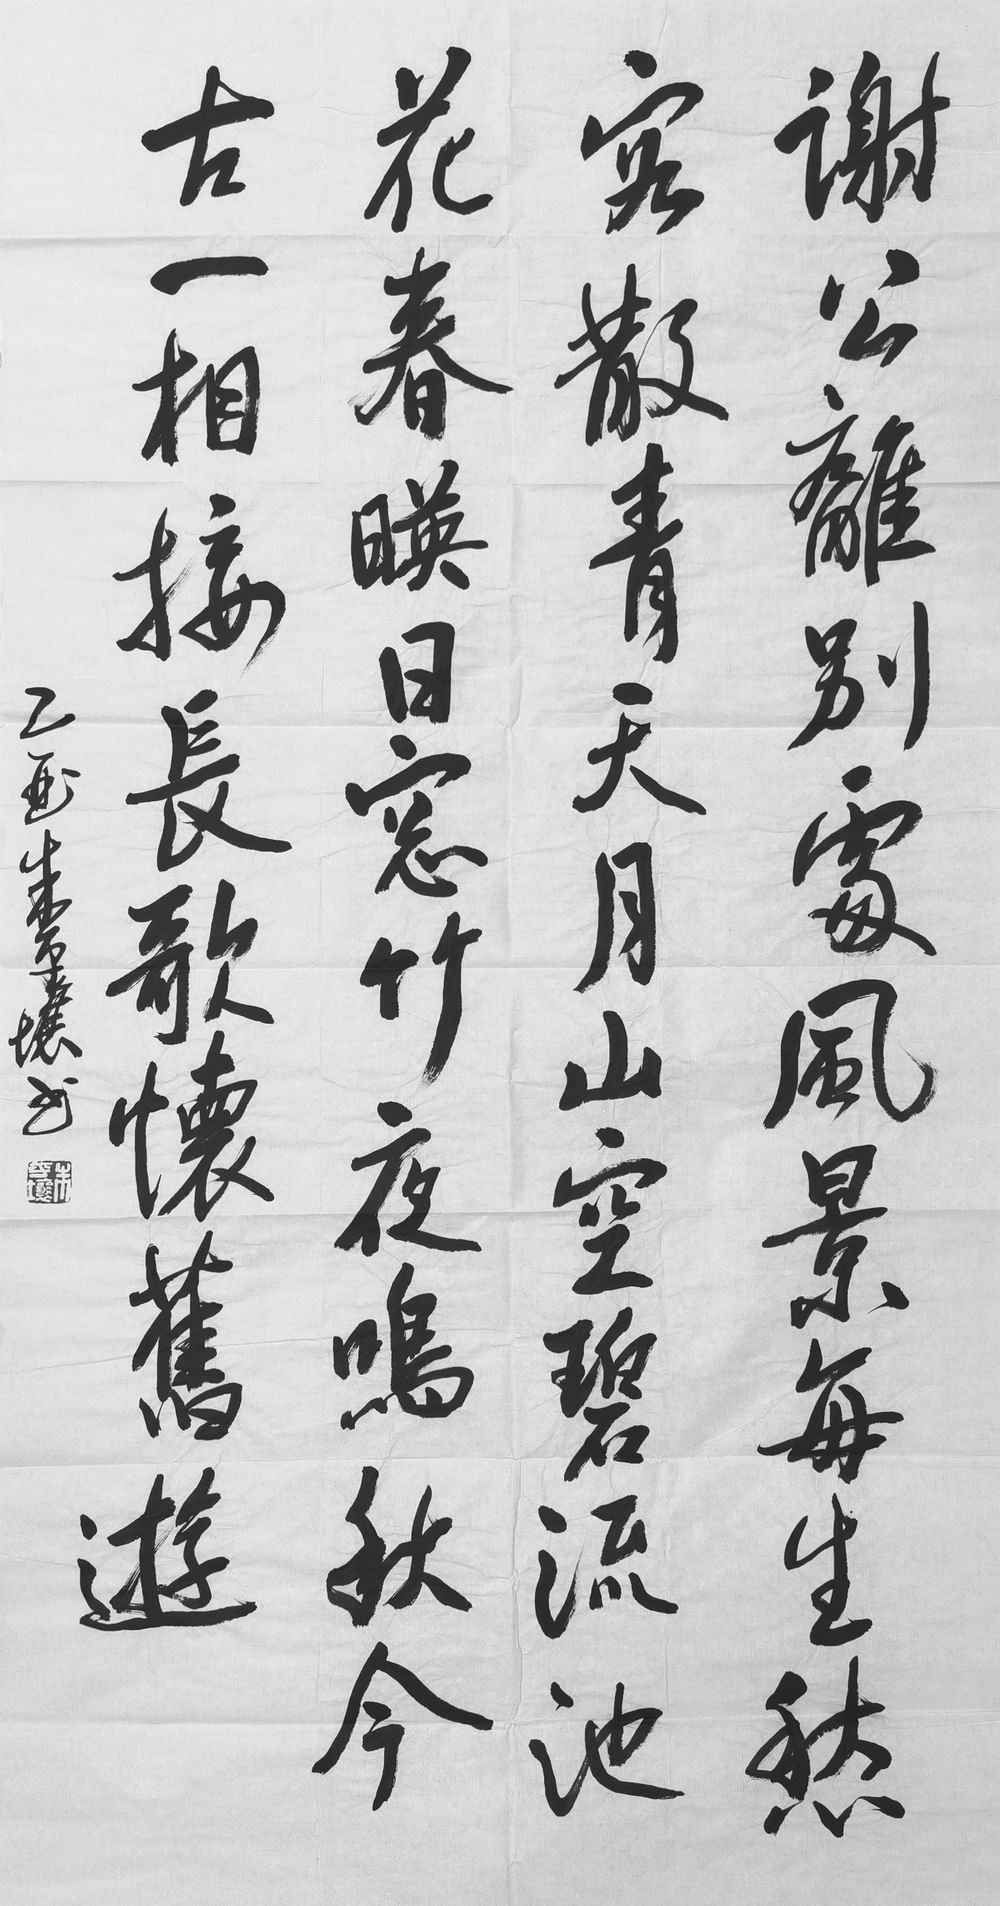 謝公離別處風景每生愁
客散青天月山空碧流池
花春暎日窓竹夜鳴秋今
古一相接長歌懷舊遊
乙酉朱季壤书